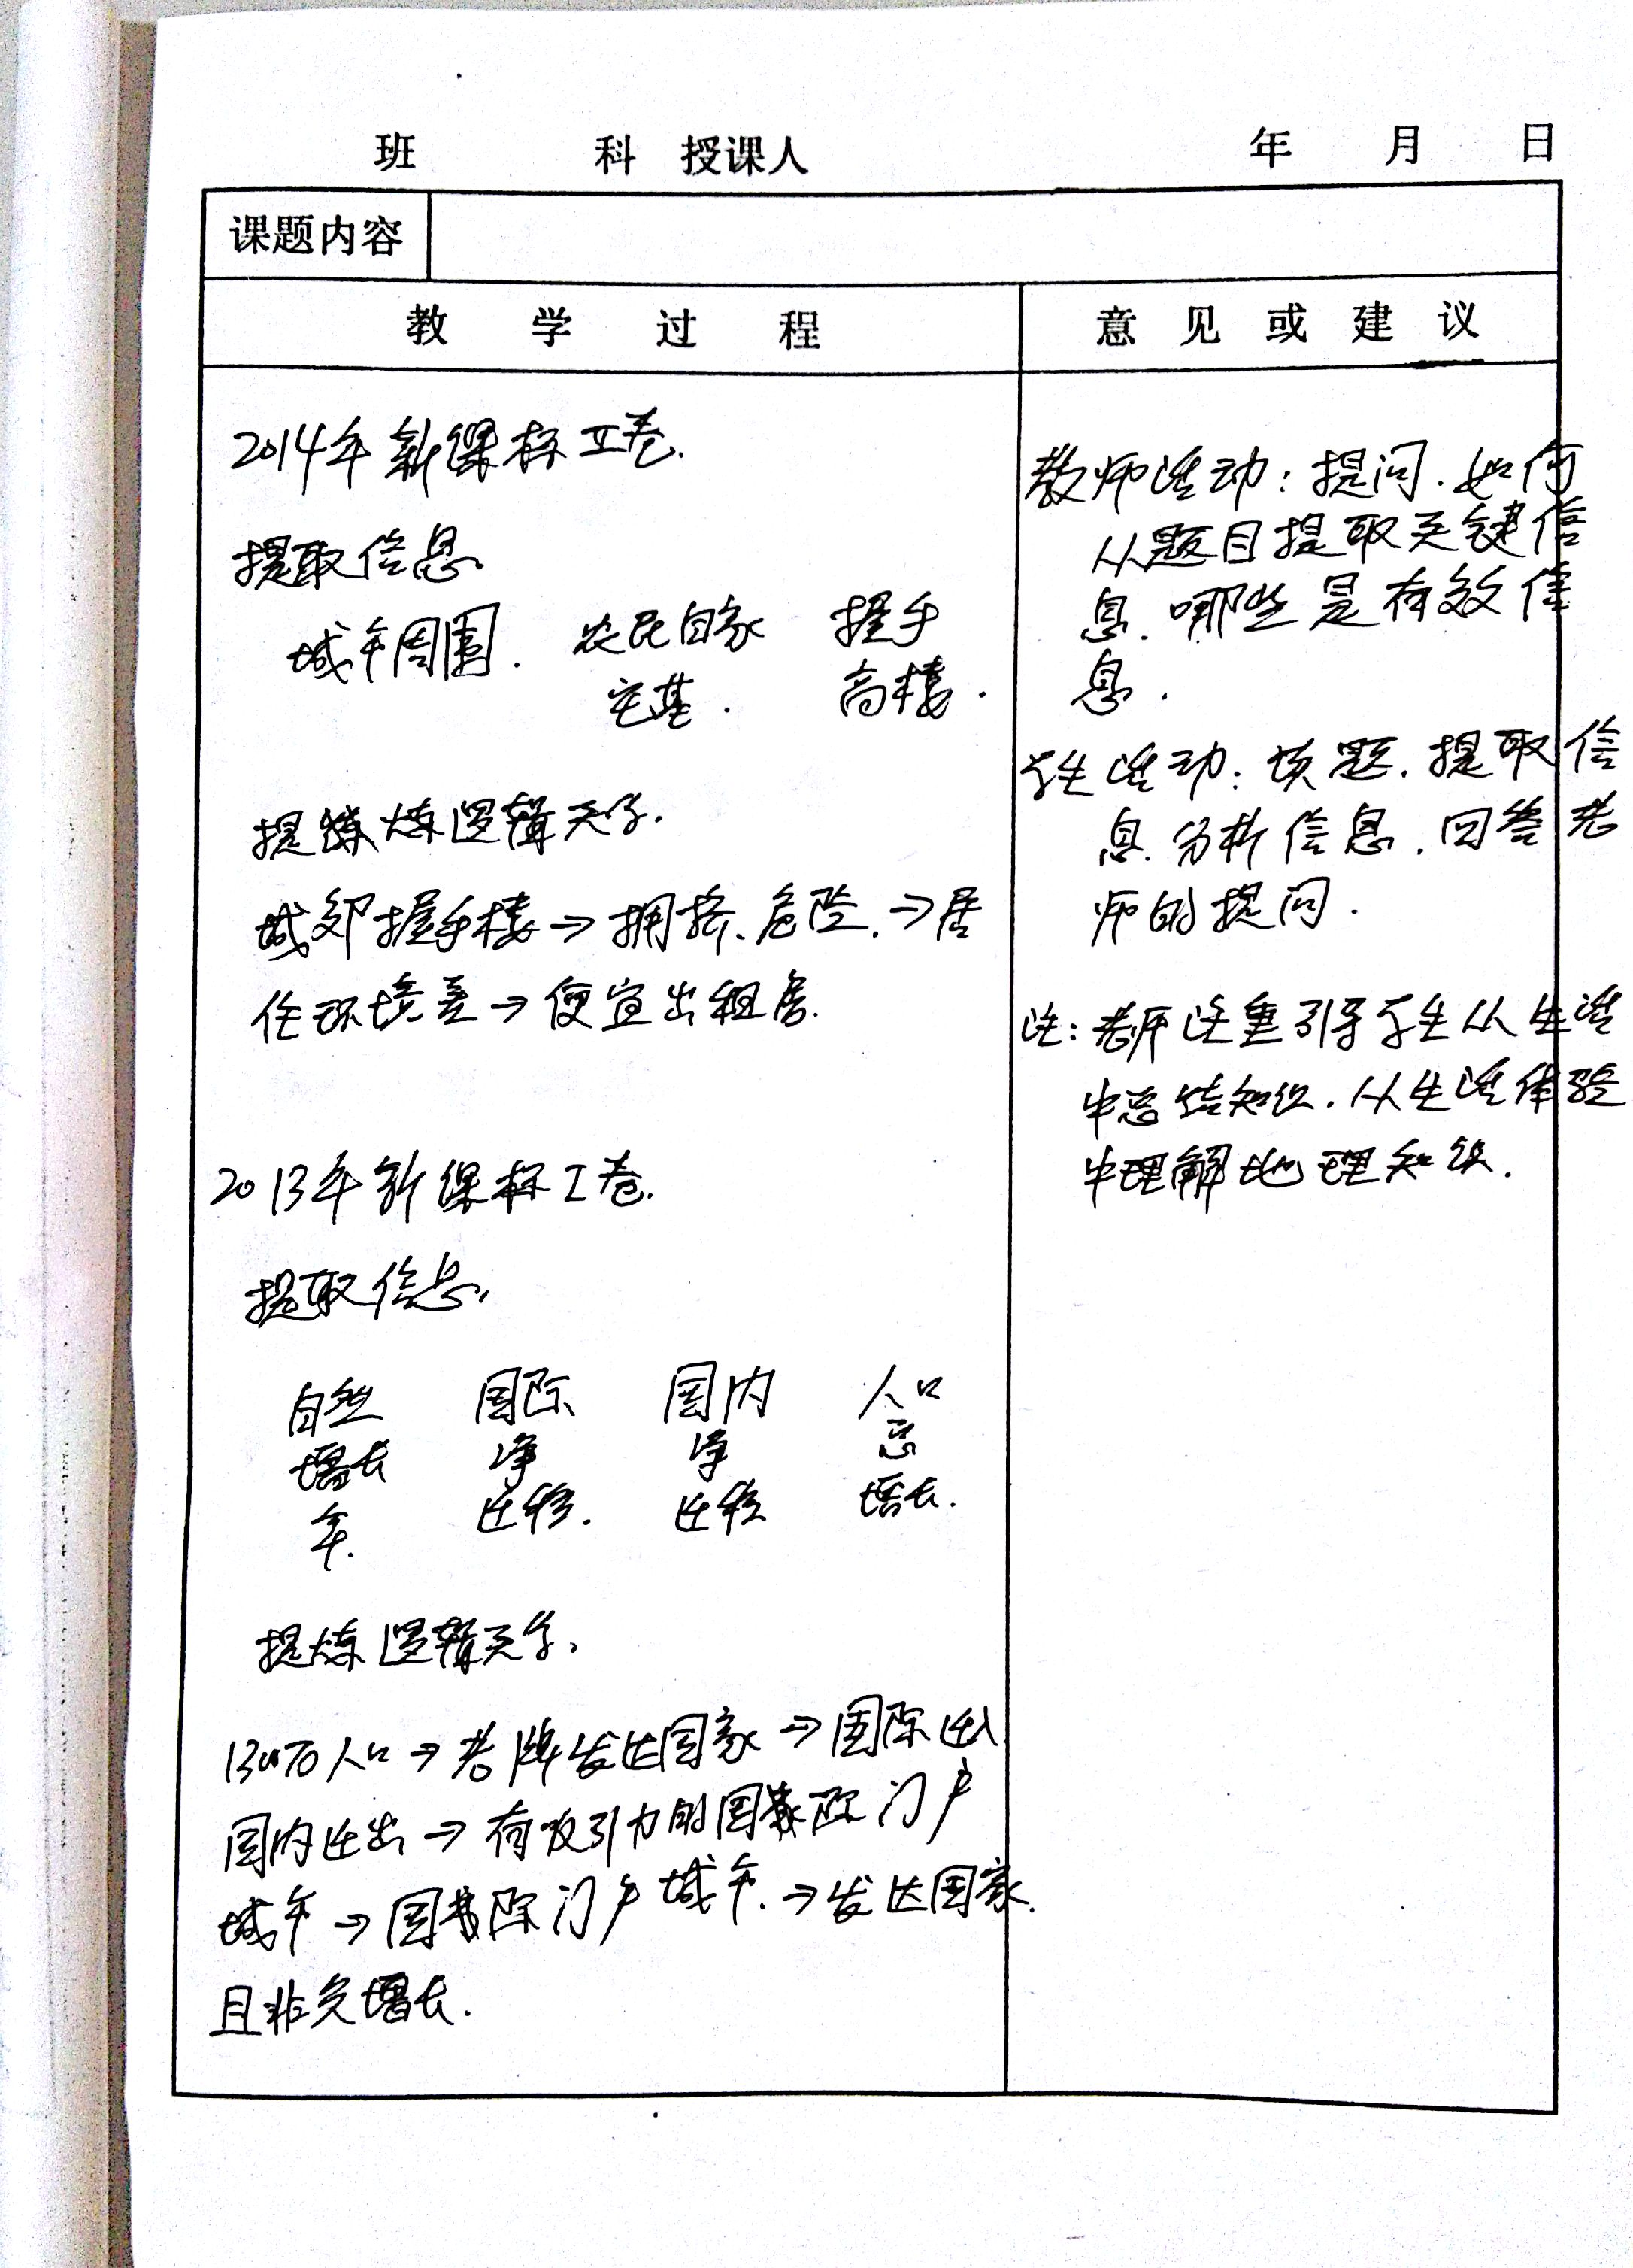 班 科 授课人 年 月 日
课题内容
教 学 过 程
意 见 或 建 议
2014年新课标II卷.
提取信息
城市周围. 农民自家 握手
宅基. 高楼.
提炼逻辑关系.
城郊握手楼→拥挤、危险.→居
住环境差→便宜出租房.
2013年新课标I卷.
提取信息.
自然 国际 国内 人口
增长 净 净 总
率. 迁移. 迁移 增长.
提炼逻辑关系.
1300万人口→老牌发达国家→国际迁入
国内迁出→有吸引力的国际门户
城市→国际门户城市.→发达国家.
且非负增长.
教师活动:提问.如何
从题目提取关键信
息.哪些是有效信
息.
学生活动:读题.提取信
息.分析信息.回答老
师的提问.
注:老师注重引导学生从生活
中总结知识.从生活体验
中理解地理知识.